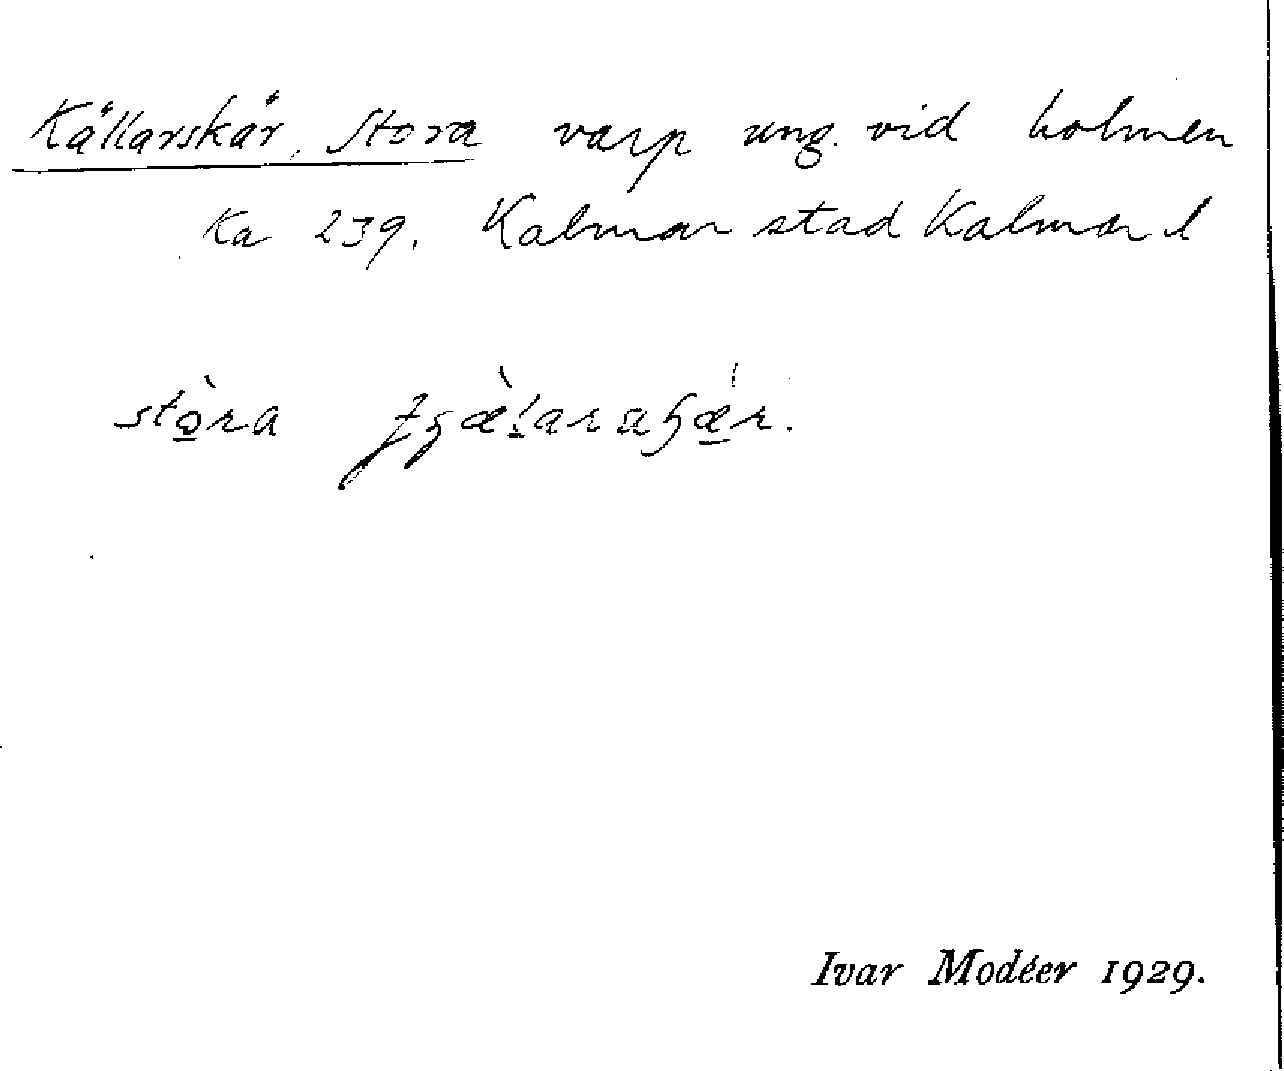 Källarskär, Stora varp ung. vid holmen
Ka 239. Kalmar stad Kalmar l
stò̠ra
Ivar Modéer 1929.